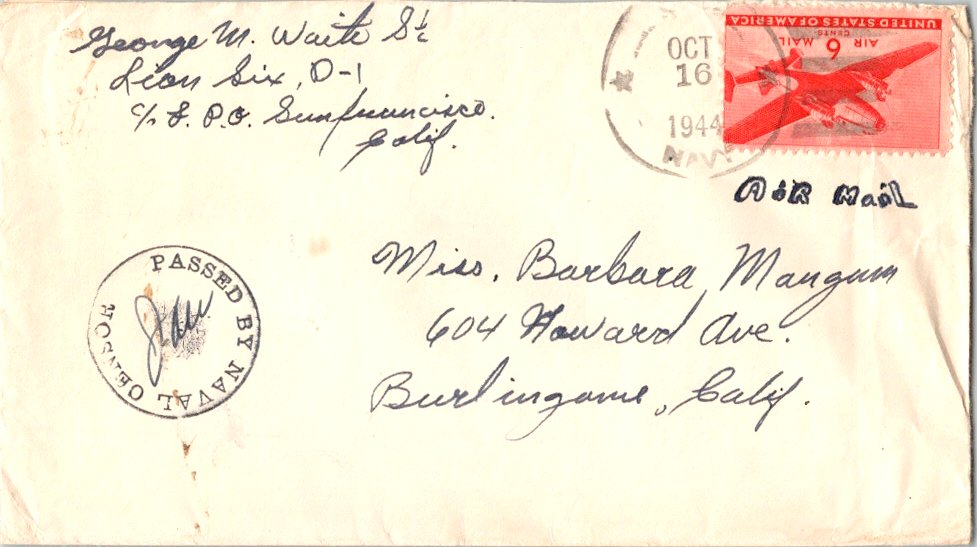 George M. Waite S1/c
Lion Six, D-1
c/o F. P.O. Sanfrancisco.
Calif.
OCT
16
1944
NAVY
UNITED STATES OF AMERICA
CENTS
6
AIR MAIL
AiR Mail
PASSED BY NAVAL CENSOR
Miss. Barbara Mangum
604 Howard Ave.
Burlingame, Calif.